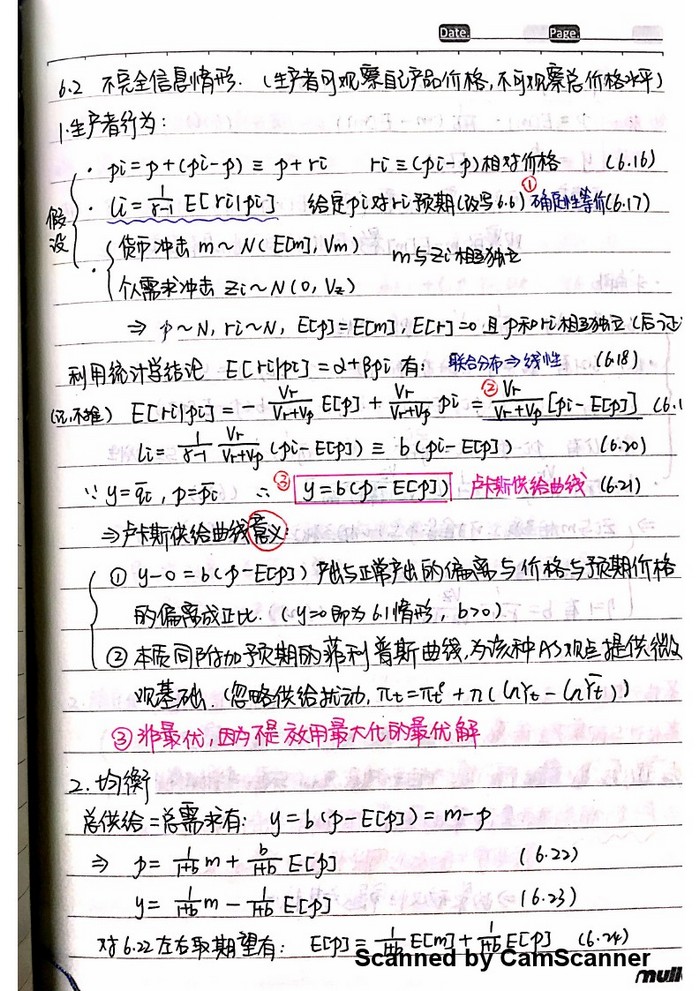 Date. Page.
6.2 不完全信息情形.（生产者可观察自己产品价格,不可观察总价格水平）
1.生产者行为:
· pi = p+(pi-p) ≡ p+ri ri≡(pi-p)相对价格 (6.16)
假设 · li = 1/(γ-1) E[ri|pi] 给定pi对ri预期(改写6.6) ①确定性等价(6.17)
· 货币冲击 m~N(E[m],Vm) m与zi相互独立
个人需求冲击 zi~N(0,Vz)
⇒ p~N, ri~N, E[p]=E[m], E[r]=0 且p和ri相互独立(后证
利用统计学结论 E[ri|pi]=α+βpi 有: 联合分布⇒线性 (6.18)
E[ri|pi] = - Vr/(Vr+Vp) E[p] + Vr/(Vr+Vp) pi = ② Vr/(Vr+Vp) [pi-E[p]] (6.1
li = 1/(γ-1) Vr/(Vr+Vp) (pi-E[p]) ≡ b(pi-E[p]) (6.20)
∵ y=q̄i, p=p̄i ∴ ③ y=b(p-E[p]) 卢卡斯供给曲线 (6.21)
⇒卢卡斯供给曲线意义:
① y-0=b(p-E[p]) 产出与正常产出的偏离与价格与预期价格
的偏离成正比.（y=0即为6.1情形, b>0）
② 本质同附加预期的菲利普斯曲线,为该种AS观点提供微
观基础.(忽略供给扰动, πt=πt^e+π(lnYt-lnȲt))
③ 非最优,因为不是效用最大化的最优解
2.均衡
总供给=总需求有: y=b(p-E[p])=m-p
⇒ p = 1/(1+b) m + b/(1+b) E[p] (6.22)
y = b/(1+b) m - b/(1+b) E[p] (6.23)
对6.22左右取期望有: E[p] = 1/(1+b) E[m] + b/(1+b) E[p] (6.24)
Scanned by CamScanner